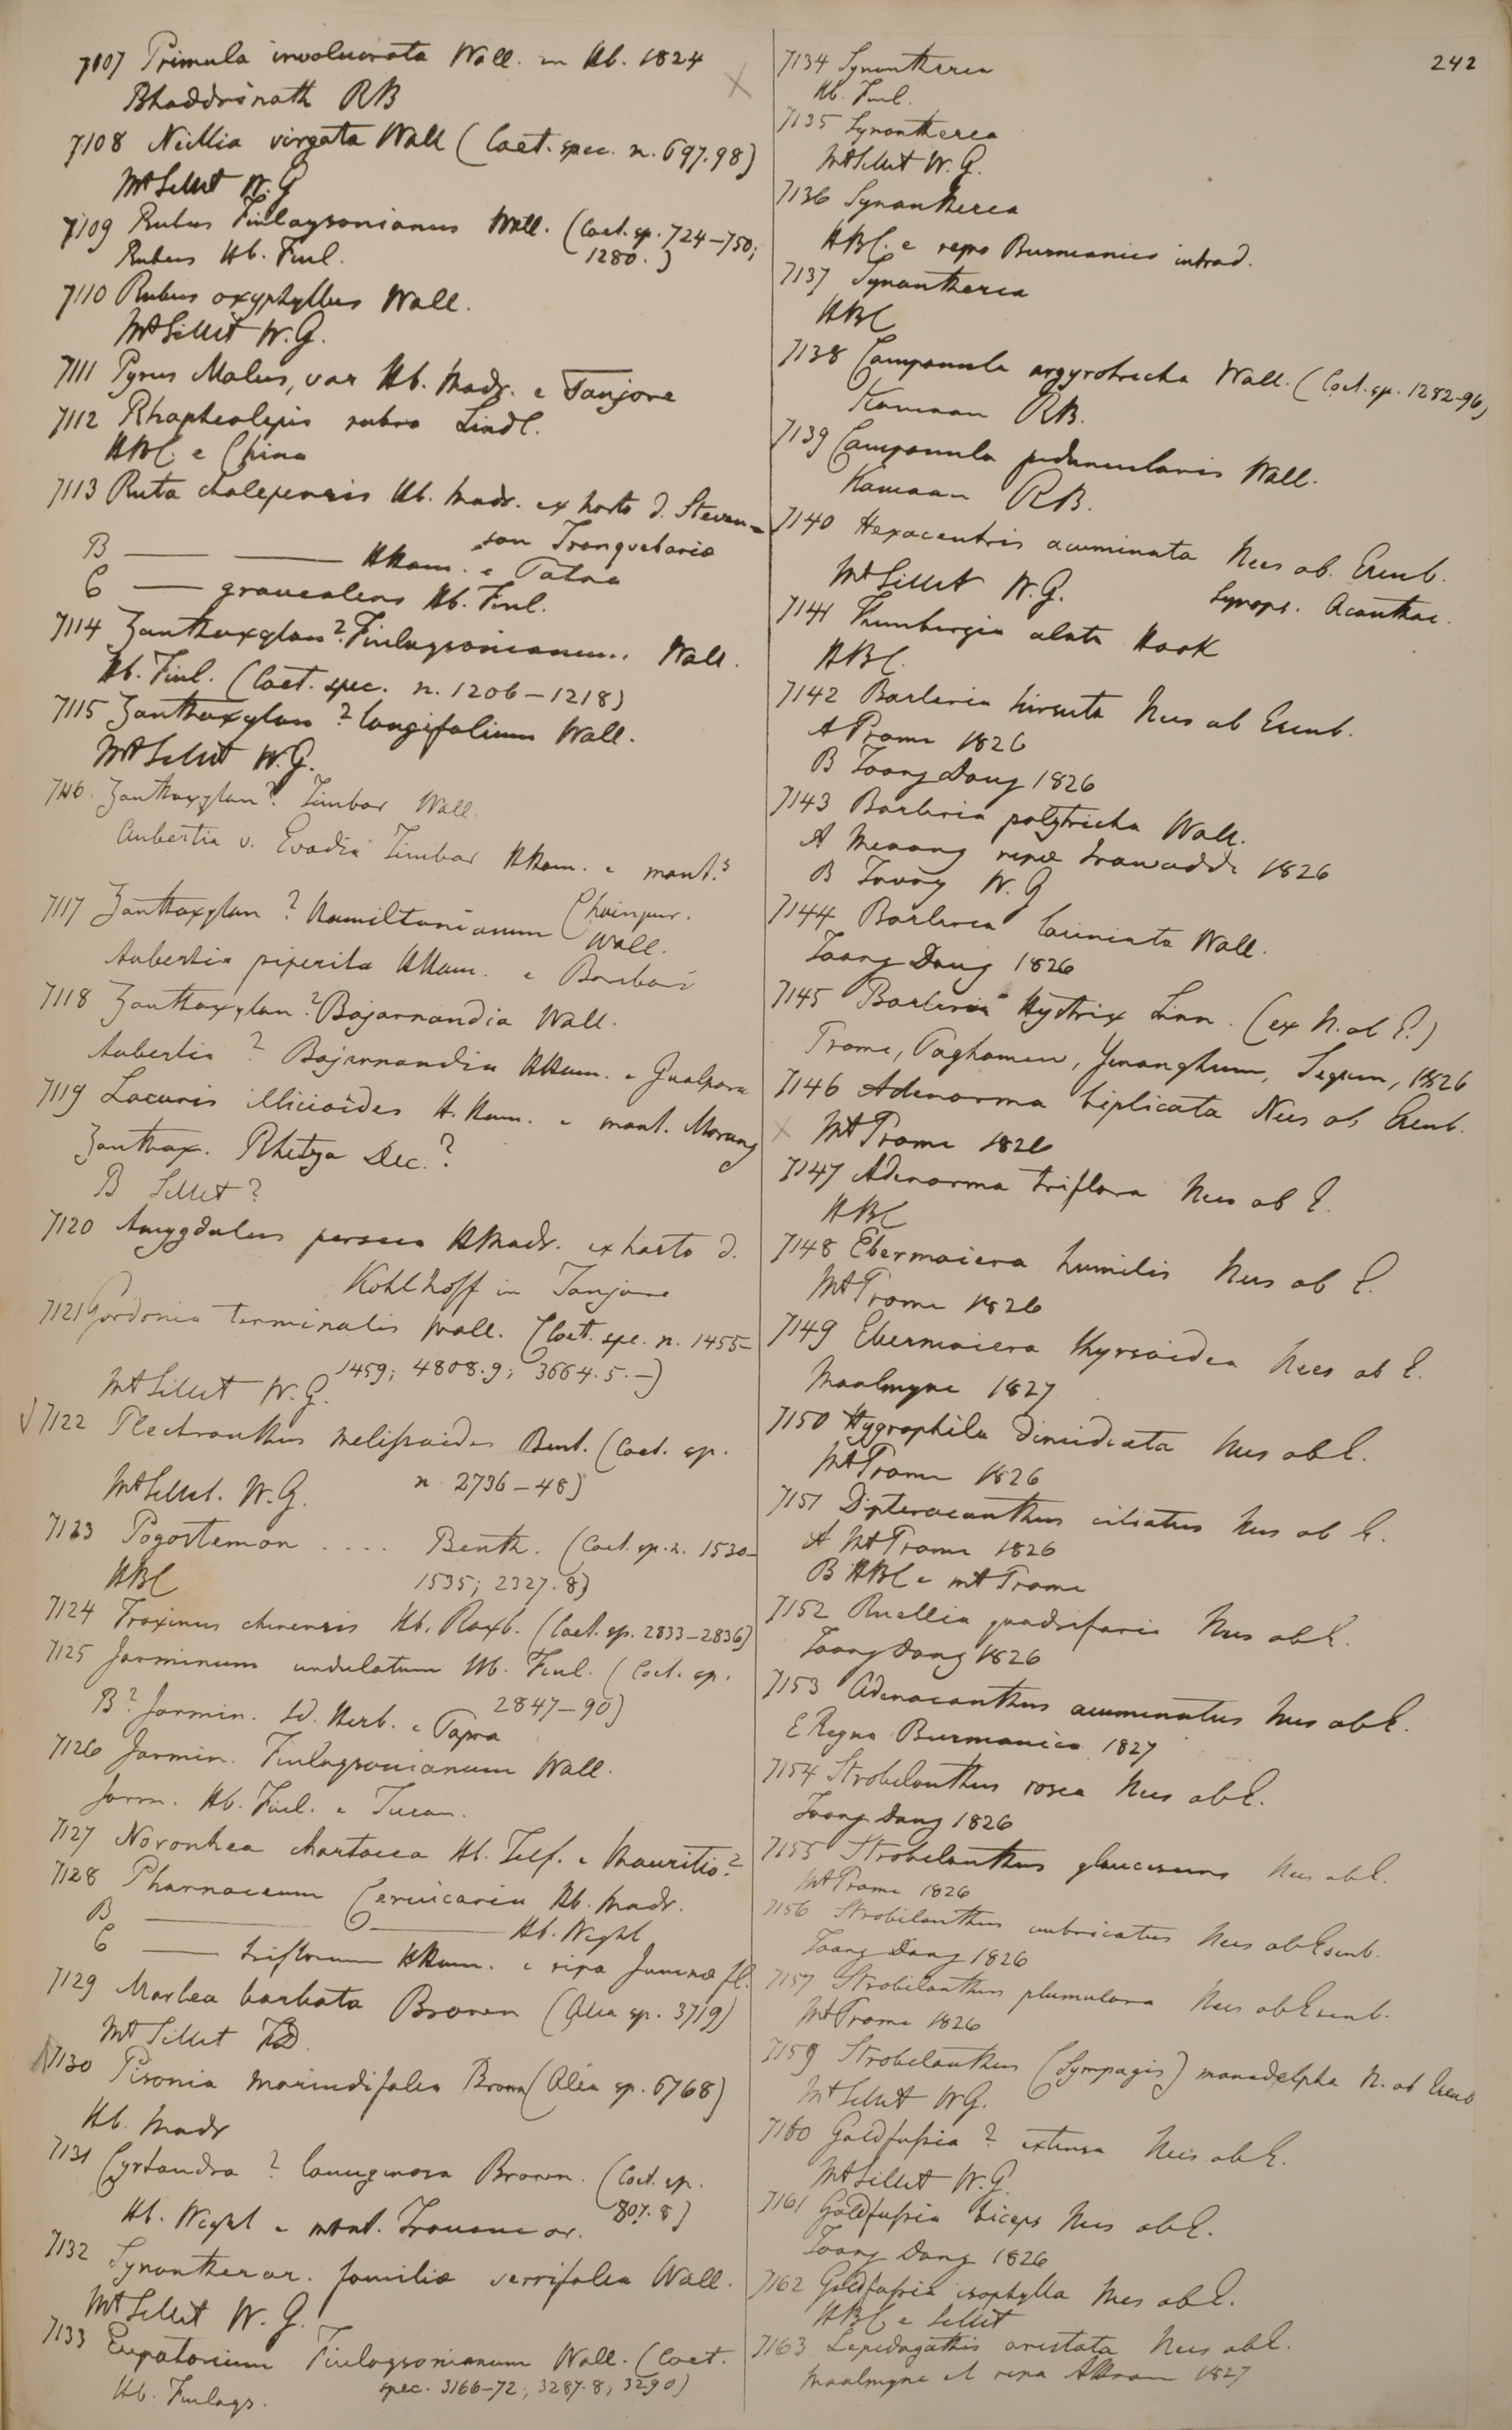 242
7107 Primula involucrata Wall. in Hb. 1824
Bhaddrinath RB
7108 Neillia virgata Wall (Caet. spec. n. 697.98)
Mt Sillet W.G
7109 Rubus Finlaysonianus Wall. (Caet. sp. 724–750;
Rubus Hb. Finl. 1280.)
7110 Rubus oxyphyllus Wall.
Mt Sillet W.G.
7111 Pyrus Malus, var Hb. Madr. e Tanjore
7112 Rhaphiolepis rubra Lindl.
HBC e China
7113 Ruta chalepensis Hb. Madr. ex horto d. Steven-
son Tranquebaria
B —— —— HHam. e Patna
C —— graveolens Hb. Finl.
7114 Zanthoxylon? Finlaysonianum. Wall.
Hb. Finl. (Caet. spec. n. 1206–1218)
7115 Zanthoxylon ? longifolium Wall.
Mt Sillet W.G.
7116. Zanthoxylon? Timbor Wall.
Aubertia v. Evodia Timbor HHam. e mont.s
Chainpur.
7117 Zanthoxylon ? Hamiltonianum Wall.
Aubertia piperita HHam. e
7118 Zanthoxylon? Bajarnandia Wall.
Aubertia ? Bajarnandia HHam. e Gualpara
7119 Lacuris illicioides H. Ham. e mont. Morung
Zanthox. Rhetza Dec.?
B Sillet?
7120 Amygdalus persica HMadr. ex horto d.
Kohlhoff in Tanjore
7121 Gordonia terminalis Wall. (Caet. spe. n. 1455–
1459; 4808.9; 3664.5.–)
Mt Sillet W.G.
7122 Plectranthus melissoides Bent. (Caet. sp.
n 2736–48)
Mt Sillet. W.G.
7123 Pogostemon .... Benth. (Caet. sp. n. 1530–
HBC 1535; 2327.8)
7124 Fraxinus chinensis Hb. Roxb. (Caet. sp. 2833–2836)
7125 Jasminum undulatum Hb. Finl. (Caet. sp.
2847–90)
B? Jasmin. Id. Herb. e
7126 Jasmin. Finlaysonianum Wall.
Jasm. Hb. Finl. e Turan.
7127 Noronhea chartacea Hb. Telf. e Mauritio?
7128 Pharnaceum Cervicaria Hb. Madr.
B —— —— Hb. Wight
C —— triflorum HHam. e ripa Jumnae fl.
7129 Marlea barbata Brown (Alia sp. 3719)
Mt Sillet FD
7130 Pisonia morindifolia Brown (Alia sp. 6768)
Hb. Madr
7131 Cyrtandra ? lanuginosa Brown. (Caet. sp.
807.8)
Hb. Wight e mont. Travancor.
7132 Synantherar. familiae serrifolia Wall.
Mt Sillet W.G.
7133 Eupatorium Finlaysonianum Wall. (Caet.
spec. 3166–72; 3287.8; 3290)
Hb. Finlays.
7134 Synantherea
Hb. Finl.
7135 Synantherea
Mt Sillet W.G.
7136 Synantherea
HBC. e regno Burmanico introd.
7137 Synantherea
HBC
7138 Campanula argyrotricha Wall. (Caet. sp. 1282–96)
Kamaon RB.
7139 Campanula peduncularis Wall.
Kamaon RB.
7140 Hexacentris acuminata Nees ab. Esenb.
Synops. Acanthac.
Mt Sillet W.G.
7141 Thunbergia alata Hook
HBC.
7142 Barleria hirsuta Nees ab Esenb.
A Prome 1826
B Toong Dong 1826
7143 Barleria polytricha Wall.
A Meaong ripae Irawaddi 1826
B Tavoy W.G
7144 Barleria laciniata Wall.
Toong Dong 1826
7145 Barleria Hystrix Linn. (ex N. ab E.)
Prome, Paghamew, Yenanghum, Seguen, 1826
7146 Adenosma biplicata Nees ab Esenb.
Mt Prome 1826
7147 Adenosma triflora Nees ab E.
HBC
7148 Ebermaiera humilis Nees ab E.
Mt Prome 1826
7149 Ebermaiera thyrsoidea Nees ab E.
Moalmyne 1827
7150 Hygrophila dimidiata Nees ab E.
Mt Prome 1826
7151 Dipteracanthus ciliatus Nees ab E.
A Mt Prome 1826
B HBC e mt Prome
7152 Ruellia quadrifaria Nees ab E.
Toong Dong 1826
7153 Adenacanthus acuminatus Nees ab E.
E Regno Burmanico 1827
7154 Strobilanthus rosea Nees ab E.
Toong Dong 1826
7155 Strobilanthus glaucescens Nees ab E.
Mt Prome 1826
7156 Strobilanthus imbricatus Nees ab Esenb.
Toong Dong 1826
7157 Strobilanthus plumulosa Nees ab Esenb.
Mt Prome 1826
7159 Strobilanthus (Sympagis) monadelpha N. ab Esenb
Mt Sillet WG.
7160 Goldfussia ? extensa Nees ab E.
Mt Sillet W.G.
7161 Goldfussia biceps Nees ab E.
Toong Dong 1826
7162 Goldfussia isophylla Nees ab E.
HBC e Sillet
7163 Lepidagathis aristata Nees ab E.
Moalmyne et ripa Attran 1827